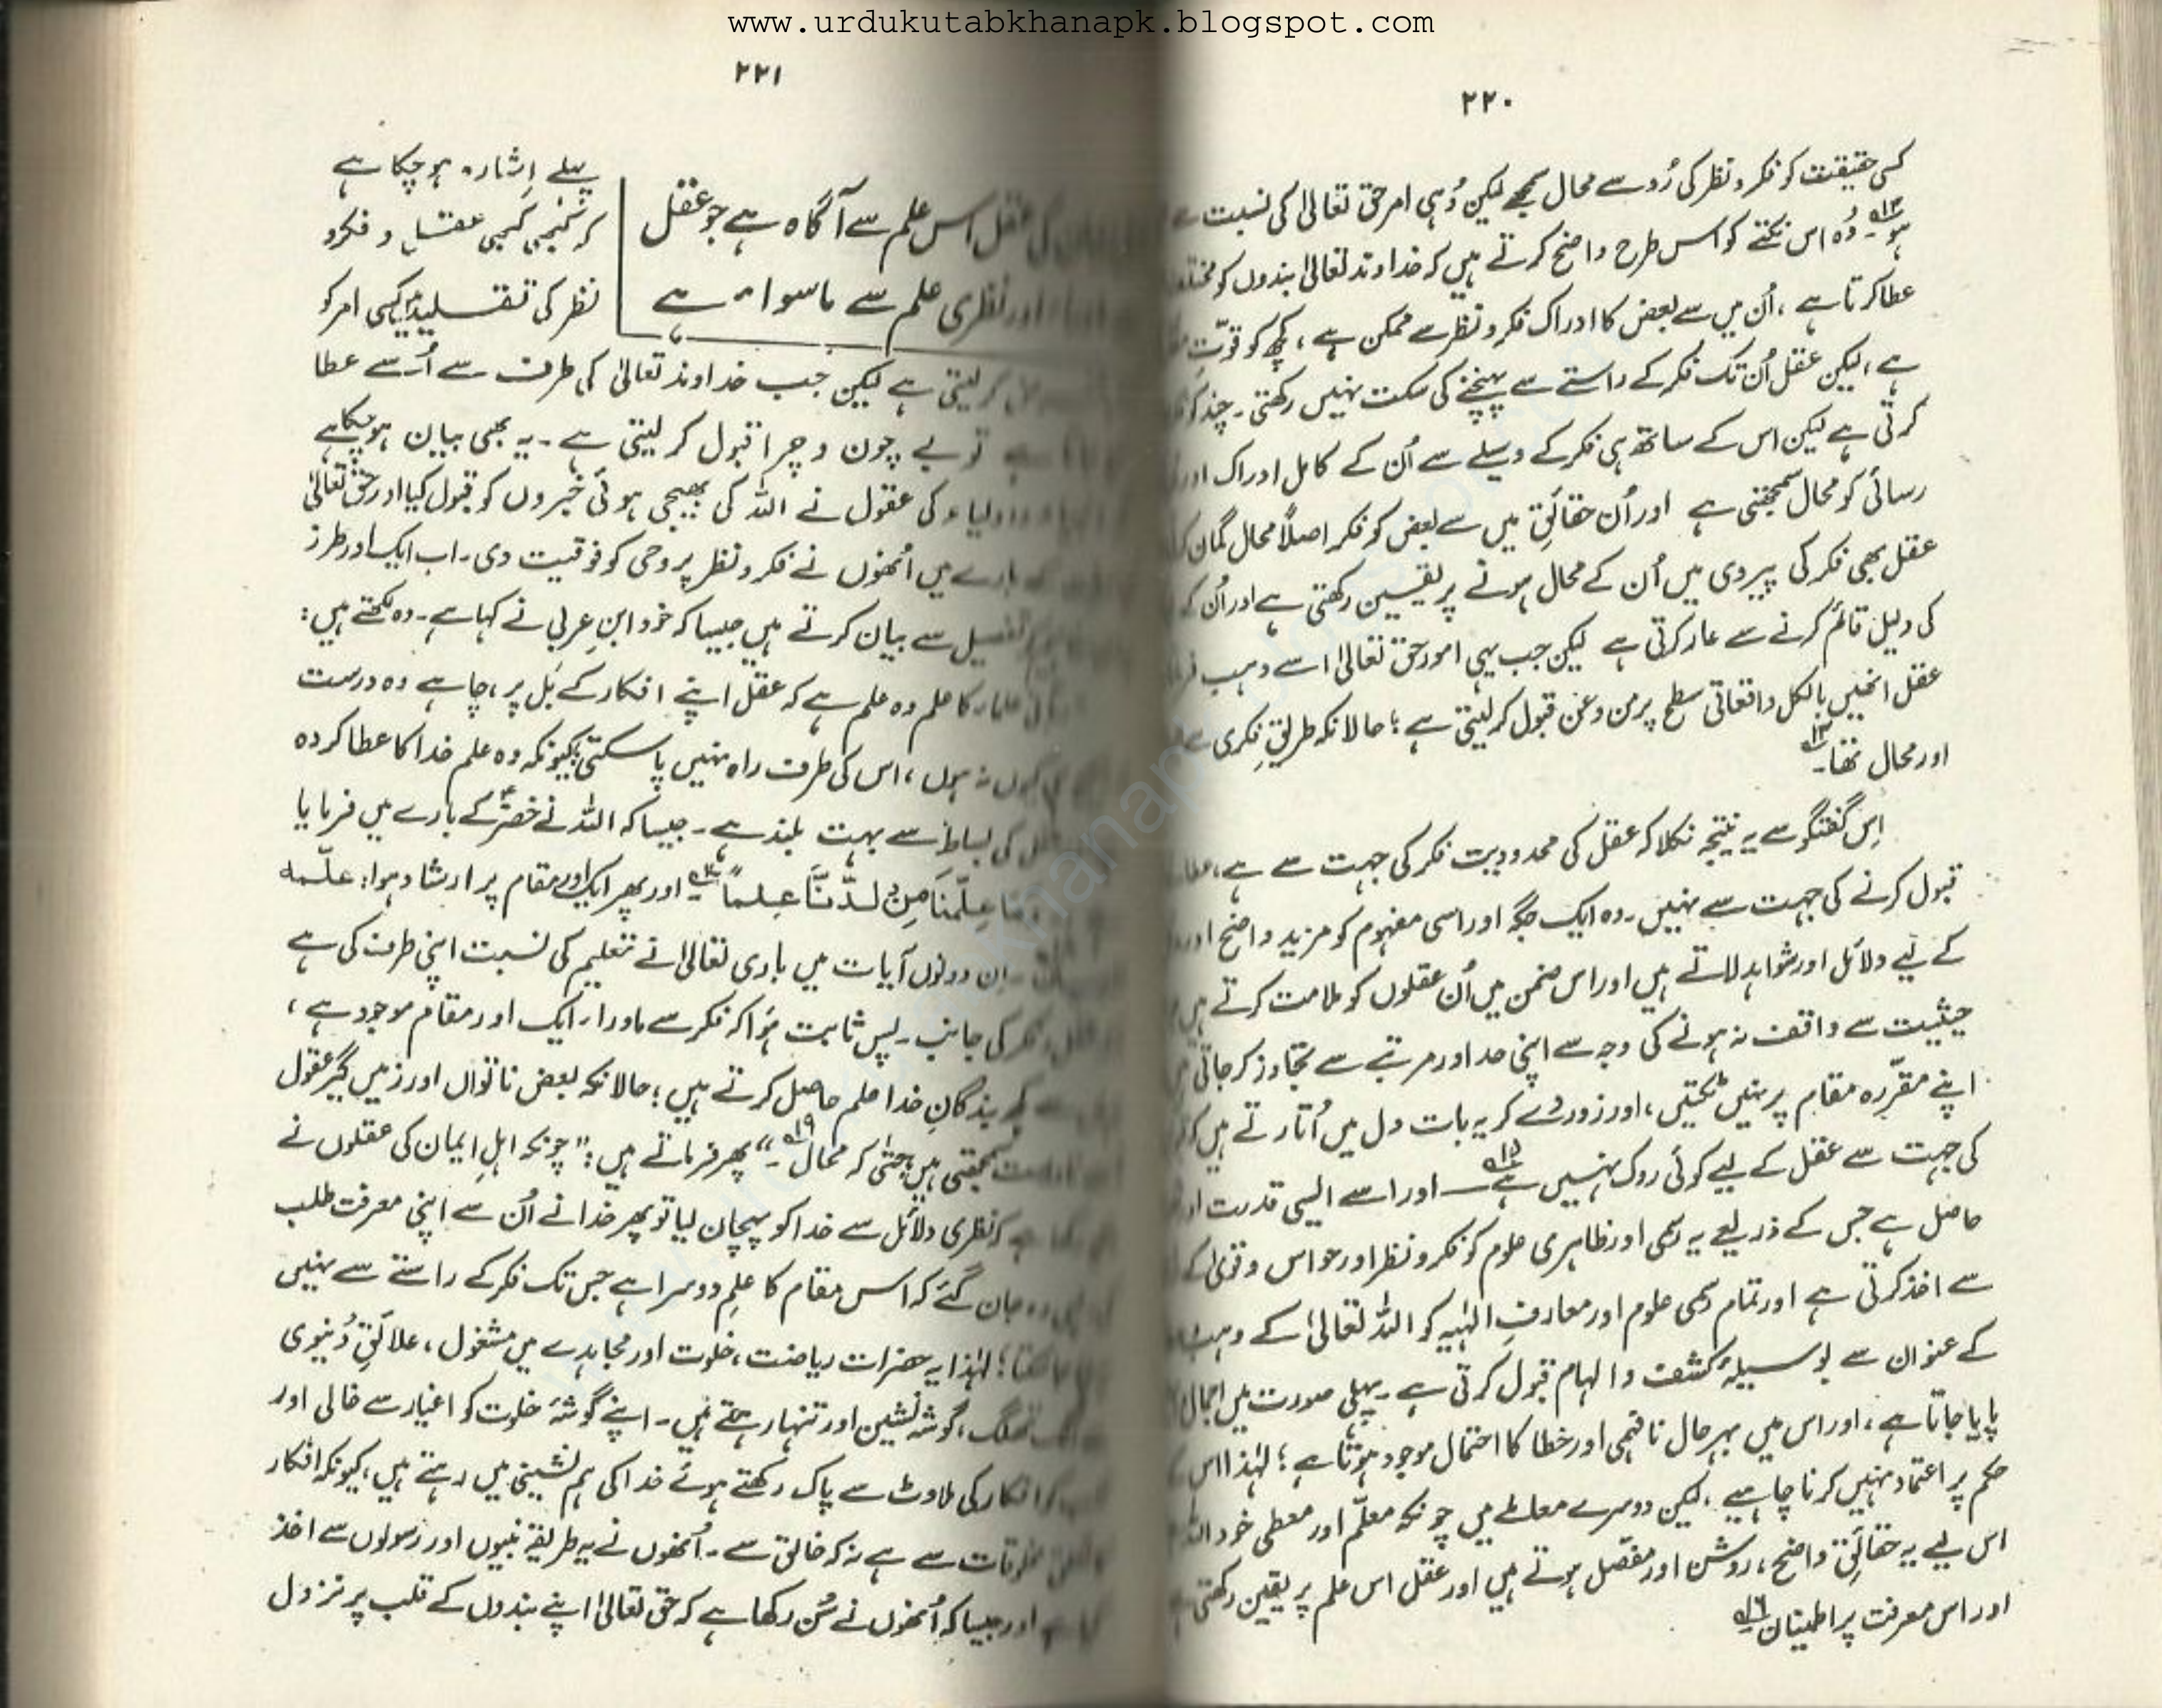 www.urdukutabkhanapk.blogspot.com
۲۲۰
کسی حقیقت کو فکر و نظر کی رُو سے محال سمجھے لیکن وُہی امر حق تعالیٰ کی نسبت سے
ہو۔ وُہ اس نکتے کو اس طرح واضح کرتے ہیں کہ خداوند تعالیٰ بندوں کو
عطا کرتا ہے ، اُن میں سے بعض کا ادراک فکر و نظر سے ممکن ہے ، کچھ کو قوّتِ
ہے ، لیکن عقل اُن تک فکر کے راستے سے پہنچنے کی سکت نہیں رکھتی ۔ چند کو
کرتی ہے لیکن اس کے ساتھ ہی فکر کے وسیلے سے اُن کے کامل ادراک اور
رسائی کو محال سمجھتی ہے اور اُن حقائق میں سے بعض کو فکر اصلاً محال گمان
عقل بھی فکر کی پیروی میں اُن کے محال ہونے پر یقین رکھتی ہے اور اُن کے
کی دلیل قائم کرنے سے عار کرتی ہے لیکن جب یہی امور حق تعالیٰ اسے وہب
عقل انھیں بالکل واقعاتی سطح پر من و عن قبول کر لیتی ہے ؛ حالانکہ طریقِ فکری سے
اور محال تھا۔
اِس گفتگو سے یہ نتیجہ نکلا کہ عقل کی محدودیت فکر کی جہت سے ہے ،
قبول کرنے کی جہت سے نہیں ۔ وہ ایک جگہ اور اسی مفہوم کو مزید واضح
کے لیے دلائل اور شواہد لاتے ہیں اور اس ضمن میں اُن عقلوں کو ملامت کرتے ہیں
حیثیت سے واقف نہ ہونے کی وجہ سے اپنی حد اور مرتبے سے تجاوز کر جاتی
اپنے مقرّرہ مقام پر نہیں ٹکتیں ، اور زور دے کر یہ بات دل میں اُتارتے ہیں کہ
کی جہت سے عقل کے لیے کوئی روک نہیں ہے ۱۵ — اور اسے ایسی قدرت
حاصل ہے جس کے ذریعے یہ رسمی اور ظاہری علوم کو فکر و نظر اور حواس و قویٰ کے
سے اخذ کرتی ہے اور تمام رسمی علوم اور معارفِ الٰہیہ کو اللہ تعالیٰ کے
کے عنوان سے بوسیلۂ کشف و الہام قبول کرتی ہے ۔ پہلی صورت میں اجمال
پایا جاتا ہے ، اور اس میں بہرحال نافہمی اور خطا کا احتمال موجود ہوتا ہے ؛ لہٰذا اس
حکم پر اعتماد نہیں کرنا چاہیے ، لیکن دوسرے معاملے میں چونکہ معلّم اور معطی خود اللہ
اس لیے یہ حقائق واضح ، روشن اور مفصل ہوتے ہیں اور عقل اس علم پر یقین رکھتی
اور اس معرفت پر اطمینان ۱۶
۲۲۱
کی عقل اس علم سے آگاہ ہے جو عقل
اور نظری علم سے ماسوا ہے
پہلے اِشارہ ہو چکا ہے
کہ کبھی کبھی عقل و فکر و
نظر کی تقلید میں کسی امر کو
کر لیتی ہے لیکن جب خداوند تعالیٰ کی طرف سے اُسے عطا
تو بے چون و چرا قبول کر لیتی ہے ۔ یہ بھی بیان ہو چکا ہے
کی عقول نے اللہ کی بھیجی ہوئی خبروں کو قبول کیا اور حق تعالیٰ
بارے میں اُنھوں نے فکر و نظر پر وحی کو فوقیت دی ۔ اب ایک اور طرز
تفصیل سے بیان کرتے ہیں جیسا کہ خود ابنِ عربی نے کہا ہے ۔ وہ لکھتے ہیں :
کا علم وہ علم ہے کہ عقل اپنے افکار کے بَل پر ، چاہے وہ درست
کیوں نہ ہوں ، اس کی طرف راہ نہیں پا سکتی ، کیونکہ وہ علم خدا کا عطا کردہ
کی بساط سے بہت بلند ہے ۔ جیسا کہ اللہ نے خضرؑ کے بارے میں فرمایا
عِلّمنَاہ مِن لَدُنَّا عِلماً اور پھر ایک اور مقام پر ارشاد ہوا : علّمہ
۔ اِن دونوں آیات میں باری تعالیٰ نے تعلیم کی نسبت اپنی طرف کی ہے
فکر کی جانب ۔ پس ثابت ہُوا کہ فکر سے ماوراء ایک اور مقام موجود ہے ،
بندگانِ خدا علم حاصل کرتے ہیں ؛ حالانکہ بعض ناتواں اور زمیں گیر عقول
سمجھتی ہیں حتٰی کہ محال ۔" ۱۹ پھر فرماتے ہیں : " چونکہ اہلِ ایمان کی عقلوں نے
نظری دلائل سے خدا کو پہچان لیا تو پھر خدا نے اُن سے اپنی معرفت طلب
وہ جان گئے کہ اس مقام کا علم دوسرا ہے جس تک فکر کے راستے سے نہیں
جا سکتا ؛ لہٰذا یہ حضرات ریاضت ، خلوت اور مجاہدے میں مشغول ، علائقِ دُنیوی
تھلگ ، گوشہ نشین اور تنہا رہتے ہیں ۔ اپنے گوشۂ خلوت کو اغیار سے خالی اور
افکار کی ملاوٹ سے پاک رکھتے ہوئے خدا کی ہم نشینی میں رہتے ہیں ، کیونکہ افکار
مخلوقات سے ہے نہ کہ خالق سے ۔ اُنھوں نے یہ طریقہ نبیوں اور رسولوں سے اخذ
اور جیسا کہ اُنھوں نے سُن رکھا ہے کہ حق تعالیٰ اپنے بندوں کے قلب پر نزول